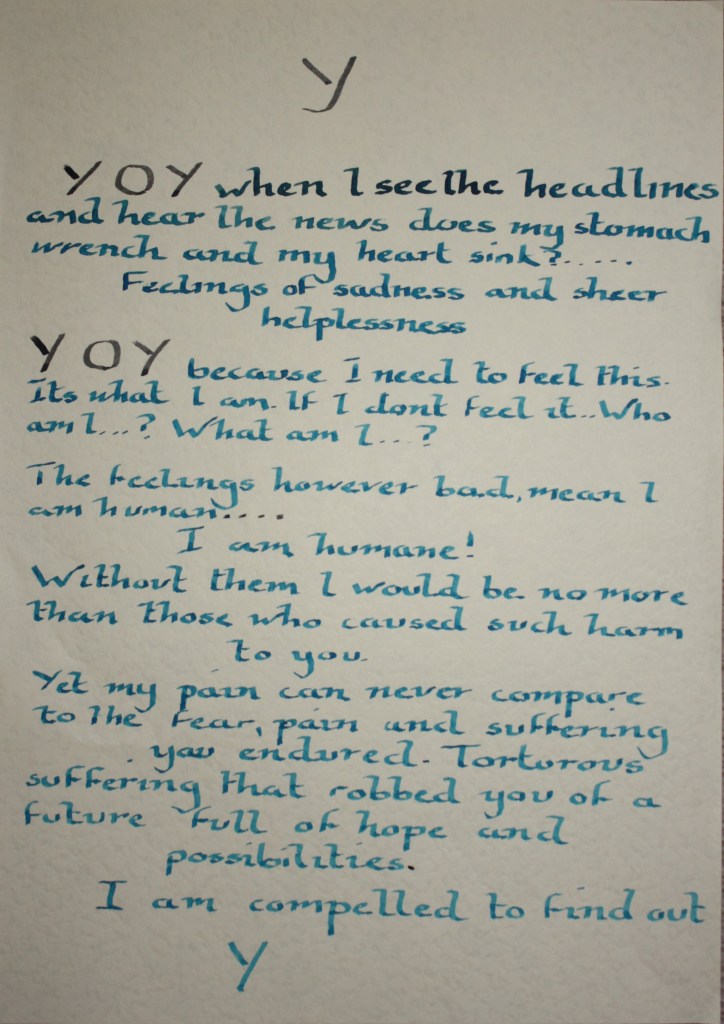 Y
Y O Y when I see the headlines
and hear the news does my stomach
wrench and my heart sink?.....
Feelings of sadness and sheer
helplessness
Y O Y because I need to feel this.
Its what I am. If I dont feel it..Who
am I...? What am I...?
The feelings however bad, mean I
am human....
I am humane!
Without them I would be no more
than those who caused such harm
to you.
Yet my pain can never compare
to the fear, pain and suffering
you endured. Torturous
suffering that robbed you of a
future full of hope and
possibilities.
I am compelled to find out
Y